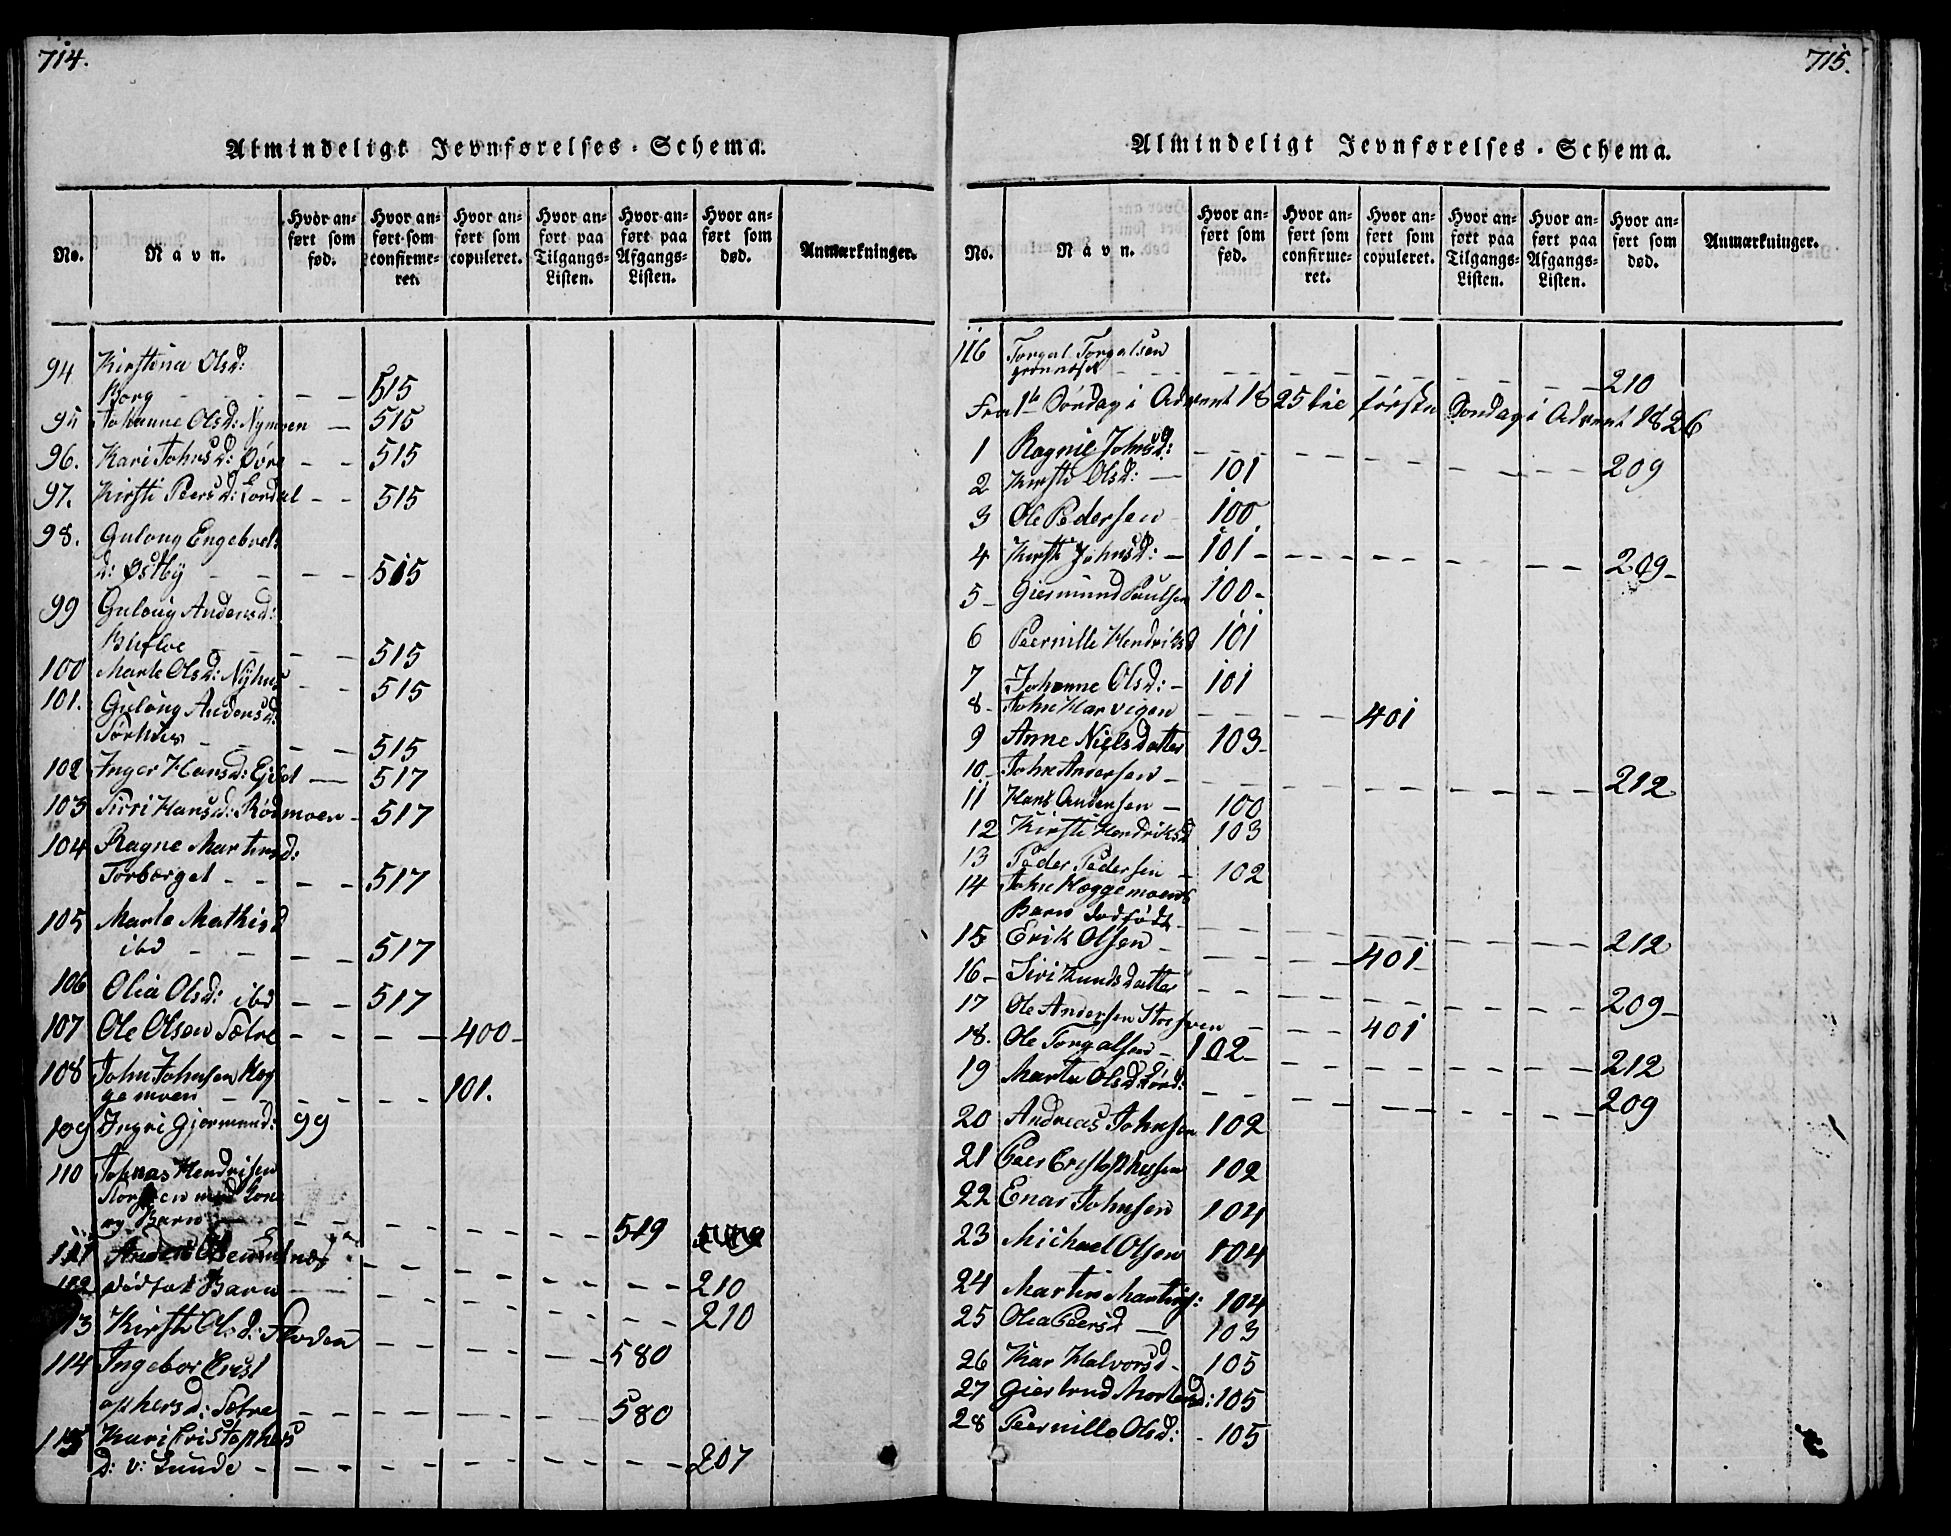 714.
Almindeligt Jevnførelses-Schema.
No. Navn. Hvor anført som fød. Hvor anført som confirmeret. Hvor anført som copuleret. Hvor anført paa Tilgangs-Listen. Hvor anført paa Afgangs-Listen. Hvor anført som død. Anmærkninger.
94 Kirstina Olsd:
Borg - - - 515
95 Johanne Olsd: Nymoen - 515
96. Kari Johnsd: Øvre - - 515
97. Kirsti Peersd: Lordal - - 515
98. Gulong Engebrets
d: Østby - - - - 515
99 Gulong Andersd:
- - - 515
100 Marte Olsd: Nyhus - - 515
101. Gulong Andersd:
- - - 515
102 Inger Hansd: Egset - 517
103 Sirri Hansd: Rødmoen - 517
104 Ragne Martinsd:
Torborget - - - - 517
105 Marte Mathisd
ibd - - - - 517
106 Olia Olsd: ibd - - 517
107 Ole Olsen Sætre - - - - 400-
108 John Johnsen Kog
gemoen - - - - - 101.
109 Ingri Gjermund: 99
110 Johnas Hendrisen
med Kone
og Barn - - - - - - 519
111 - - - - - - 210
112 dødfød Barn - - - - - 210
113 Kirsti Olsd: Floden - - - - 580
114 Ingebor Crist
ophersd: Sætre - - - - - 580
115 Kari Cristophers
d: v: Sunde - - - - - - - - 207
715.
Almindeligt Jevnførelses-Schema.
No. Navn. Hvor anført som fød. Hvor anført som confirmeret. Hvor anført som copuleret. Hvor anført paa Tilgangs-Listen. Hvor anført paa Afgangs-Listen. Hvor anført som død. Anmærkninger.
116 Torgal Torgalsen
Grønnæset - - - - - - - 210
Fra 1te Søndag i Advent 1825 til første Søndag i Advent 1826
1 Ragnil Johnsd: - - - - - - - 209
2 Kirsti Olsd: - 101
3 Ole Pedersen 100
4 Kirsti Johnsd: - 101 - - - - - - - 209-
5- Giermund Paulsen 100-
6 Peernille Hendriksd 101
7 Johanne Olsd: - 101
8- John Harvigen - - - - 401
9 Anne Nielsdatter 103-
10- John Andersen - - - - - - - - 212
11 Hans Andersen - 100
12 Kirsti Hendriksd 103
13 Peder Pedersen - 102
14 John Koggemoens
Barn dødfødt - - - - - - - 212
15 Erik Olsen - - - - 401-
16- Siri Knudsdatter - - - - - - - 209-
17 Ole Andersen Storsveen - - - 401
18. Ole Torgalsen - 102- - - - - - - 212
19 Marte Olsd: - - - - - - - 209
20 Andreas Johnsen 102
21 Peer Cristophersen 102
22 Enar Johnsen 104
23 Michael Olsen 104
24 Martin Martins: 104
25 Olea Peersd - 103
26 Kar Halvorsd - 105
27 Giertrud Mortensd: 105
28 Peernille Olsd: - 105